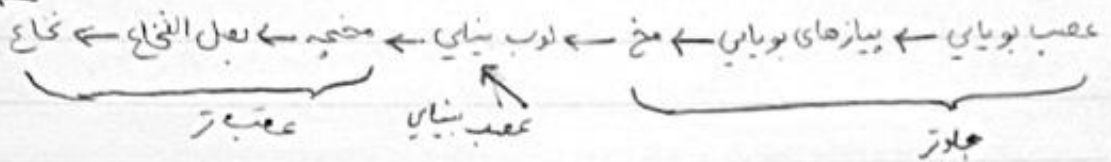 عصب بویایی ← پیازهای بویایی ← مخ ← لوب بینایی ← مخچه ← بصل النخاع ← نخاع
جلوتر عصب بینایی عقب تر